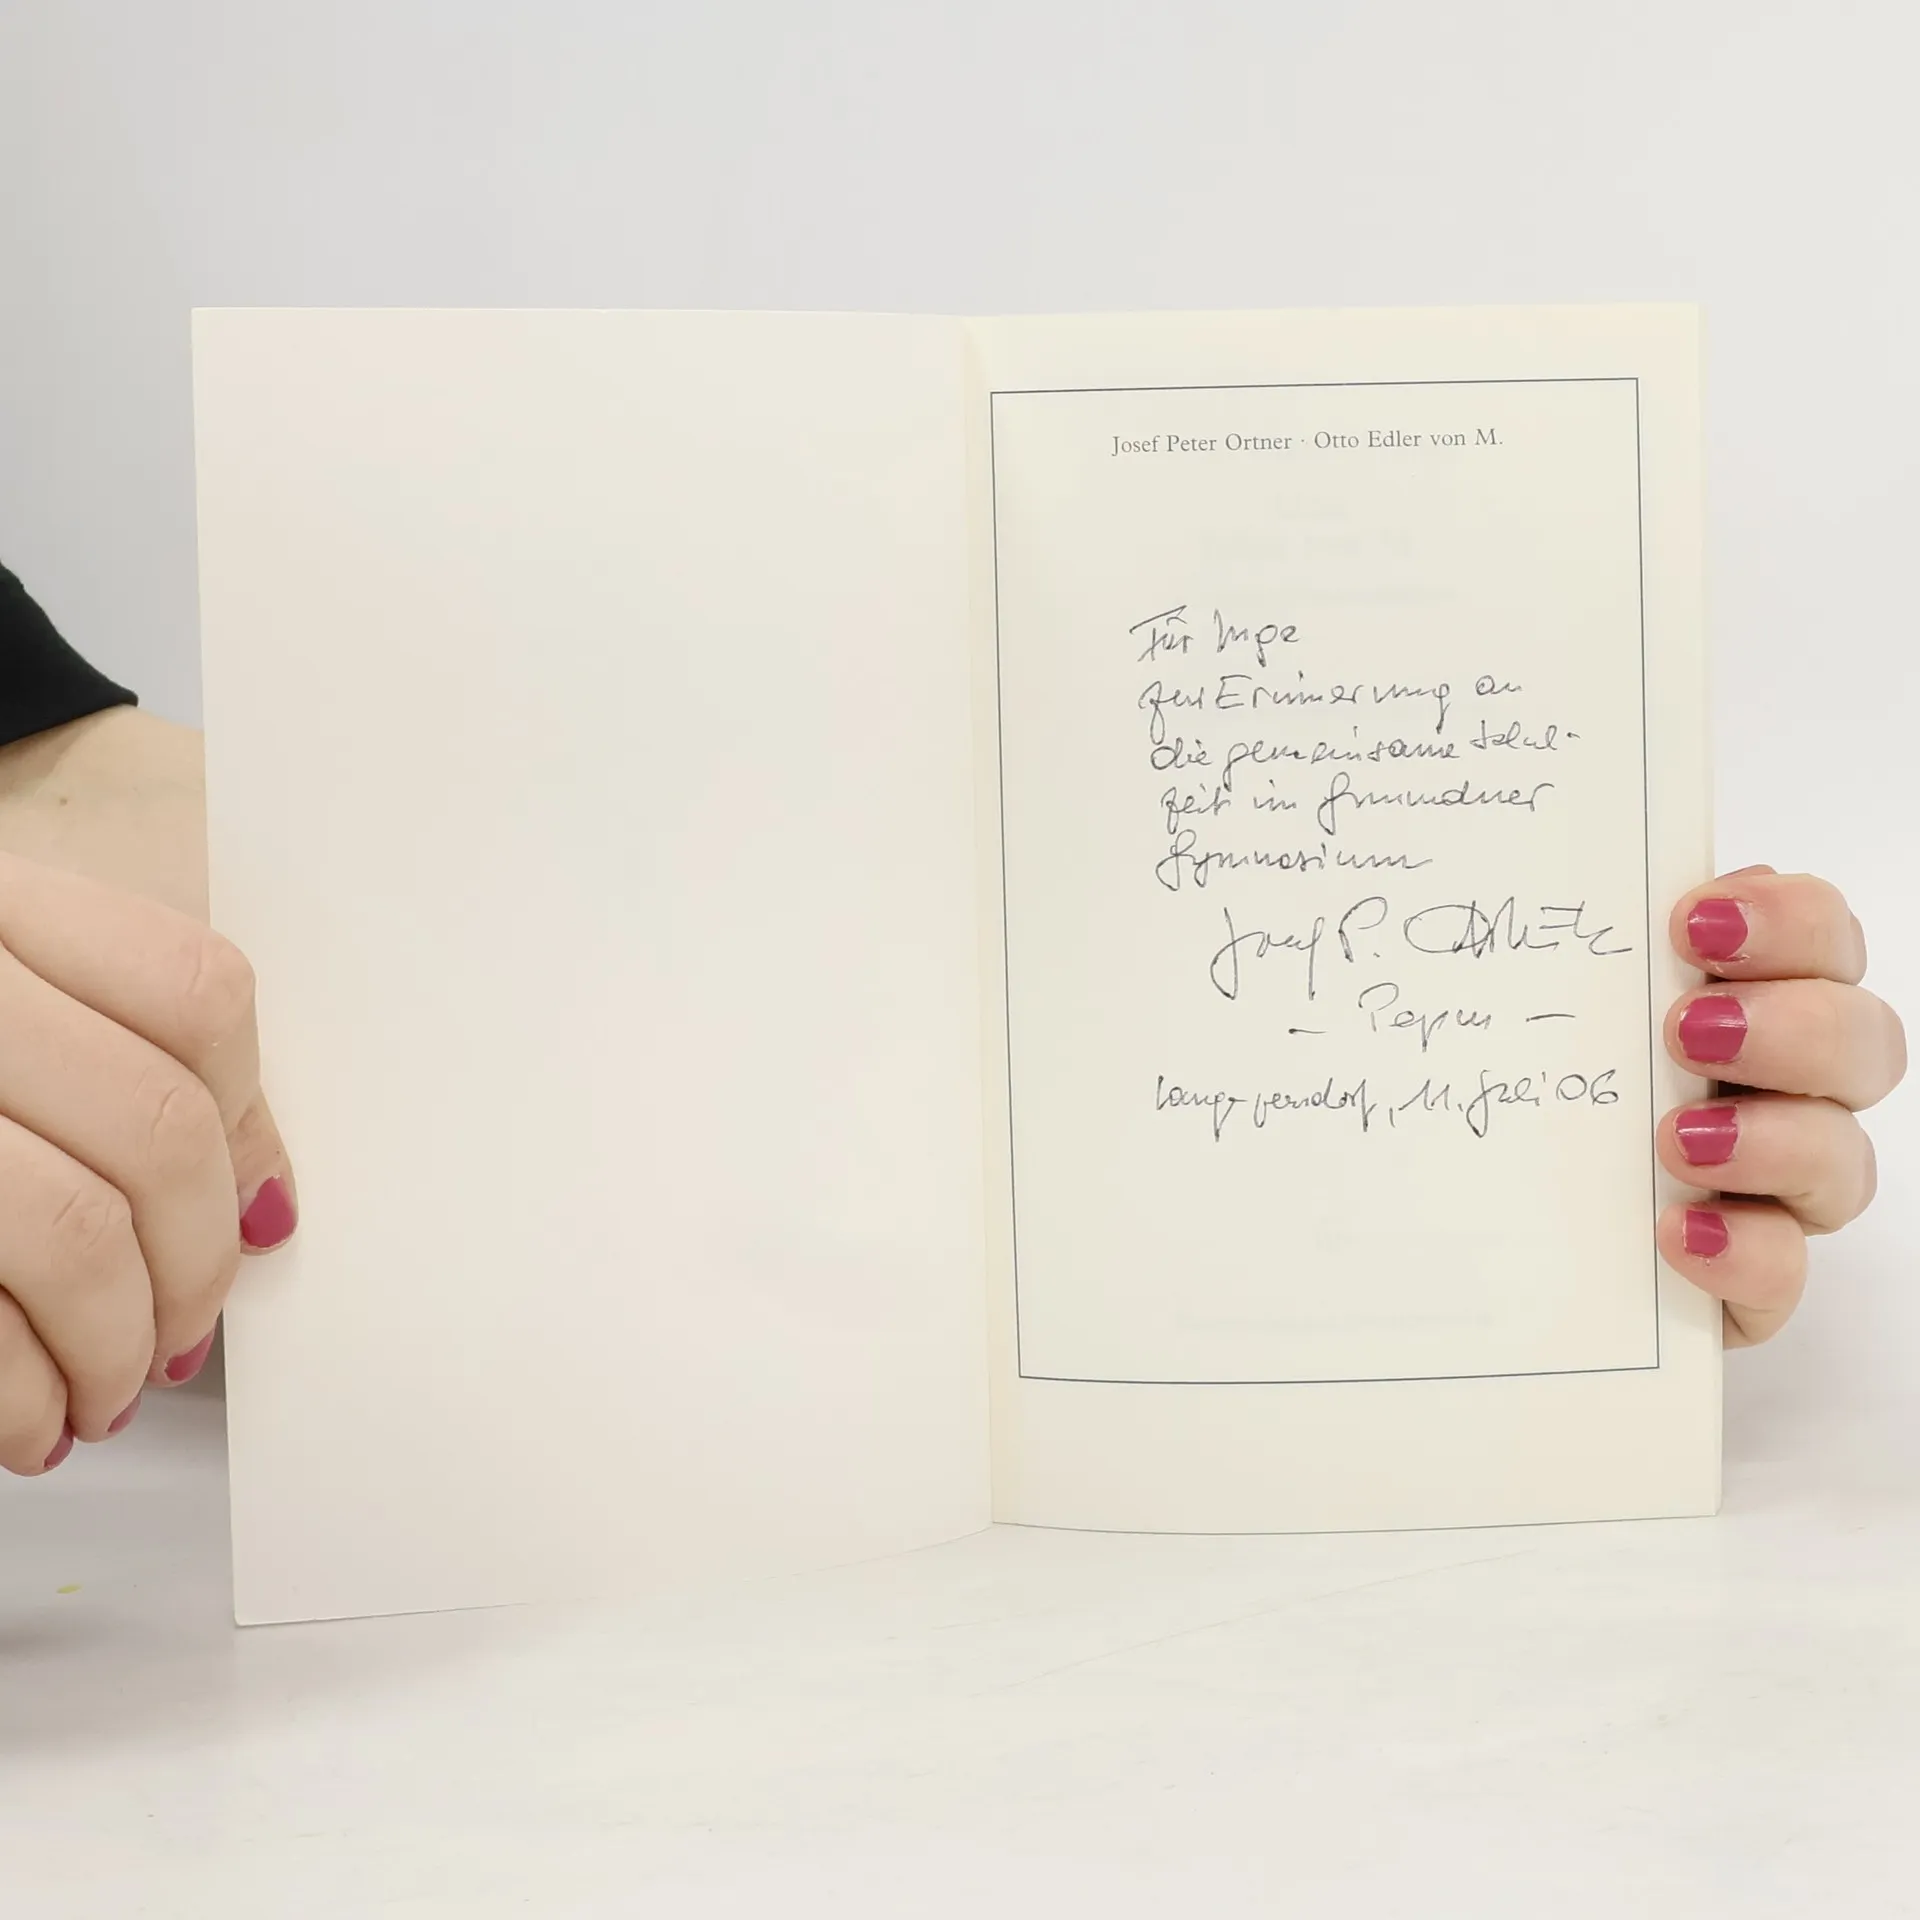 Josef Peter Ortner · Otto Edler von M.
Für Inge
zur Erinnerung an
die gemeinsame Schul-
zeit im Gmundner
Gymnasium
Josef P. Ortner
11. Juli 06